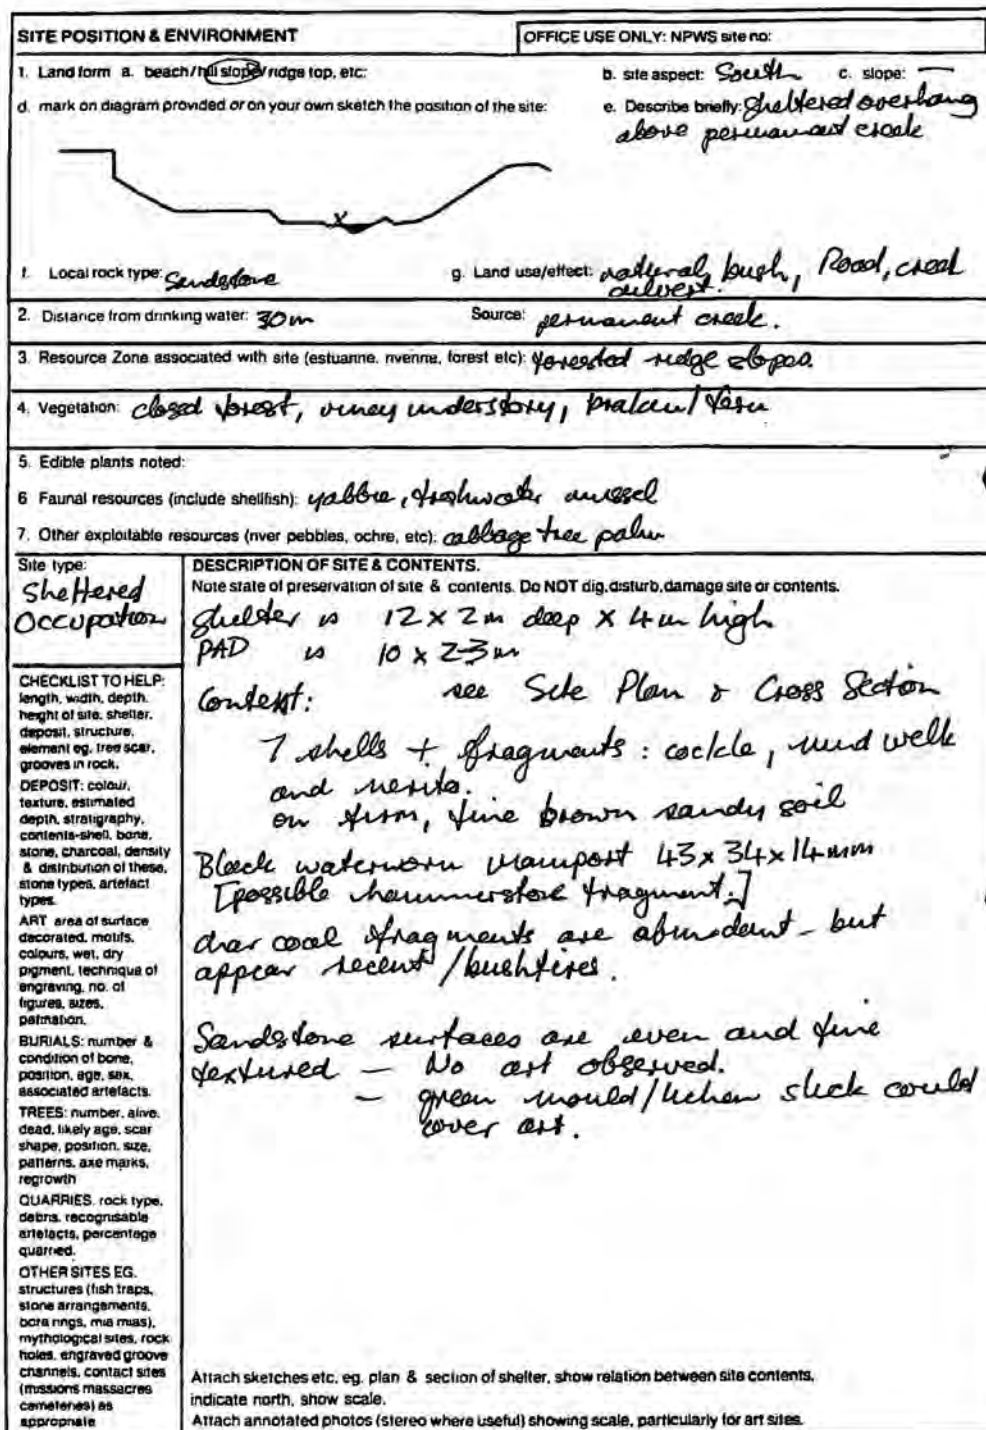 SITE POSITION & ENVIRONMENT
OFFICE USE ONLY: NPWS site no:
1. Land form a. beach/hill slope/ridge top, etc:
b. site aspect: South c. slope: —
d. mark on diagram provided or on your own sketch the position of the site:
e. Describe briefly: Sheltered overhang
above permanent creek
X
f. Local rock type: Sandstone
g. Land use/effect: natural bush, Road, creek
culvert.
2. Distance from drinking water: 30m Source: permanent creek.
3. Resource Zone associated with site (estuarine, riverine, forest etc): forested ridge slopes.
4. Vegetation: closed forest, viney understory, / fern
5. Edible plants noted:
6 Faunal resources (include shellfish): yabbie, freshwater mussel
7. Other exploitable resources (river pebbles, ochre, etc): cabbage tree palm
Site type:
Sheltered
Occupation
CHECKLIST TO HELP:
length, width, depth,
height of site, shelter,
deposit, structure,
element eg. tree scar,
grooves in rock.
DEPOSIT: colour,
texture, estimated
depth, stratigraphy,
contents-shell, bone,
stone, charcoal, density
& distribution of these,
stone types, artefact
types.
ART area of surface
decorated, motifs,
colours, wet, dry
pigment, technique of
engraving, no. of
figures, sizes,
patination.
BURIALS: number &
condition of bone,
position, age, sex,
associated artefacts.
TREES: number, alive,
dead, likely age, scar
shape, position, size,
patterns, axe marks,
regrowth
QUARRIES. rock type,
debris, recognisable
artefacts, percentage
quarried.
OTHER SITES EG.
structures (fish traps,
stone arrangements,
bora rings, mia mias),
mythological sites, rock
holes, engraved groove
channels, contact sites
(missions massacres
cemeteries) as
appropriate
DESCRIPTION OF SITE & CONTENTS.
Note state of preservation of site & contents. Do NOT dig, disturb, damage site or contents.
Shelter is 12 x 2m deep x 4m high
PAD is 10 x 2-3m
Content: see Site Plan & Cross Section
7 shells + fragments: cockle, mud welk
and nerita.
on firm, fine brown sandy soil
Black waterworn manuport 43 x 34 x 14mm
[possible hammerstone fragment.]
charcoal fragments are abundant - but
appear recent / bushfires.
Sandstone surfaces are even and fine
textured — No art observed.
— green mould/lichen slick could
cover art.
Attach sketches etc, eg. plan & section of shelter, show relation between site contents,
indicate north, show scale.
Attach annotated photos (stereo where useful) showing scale, particularly for art sites.